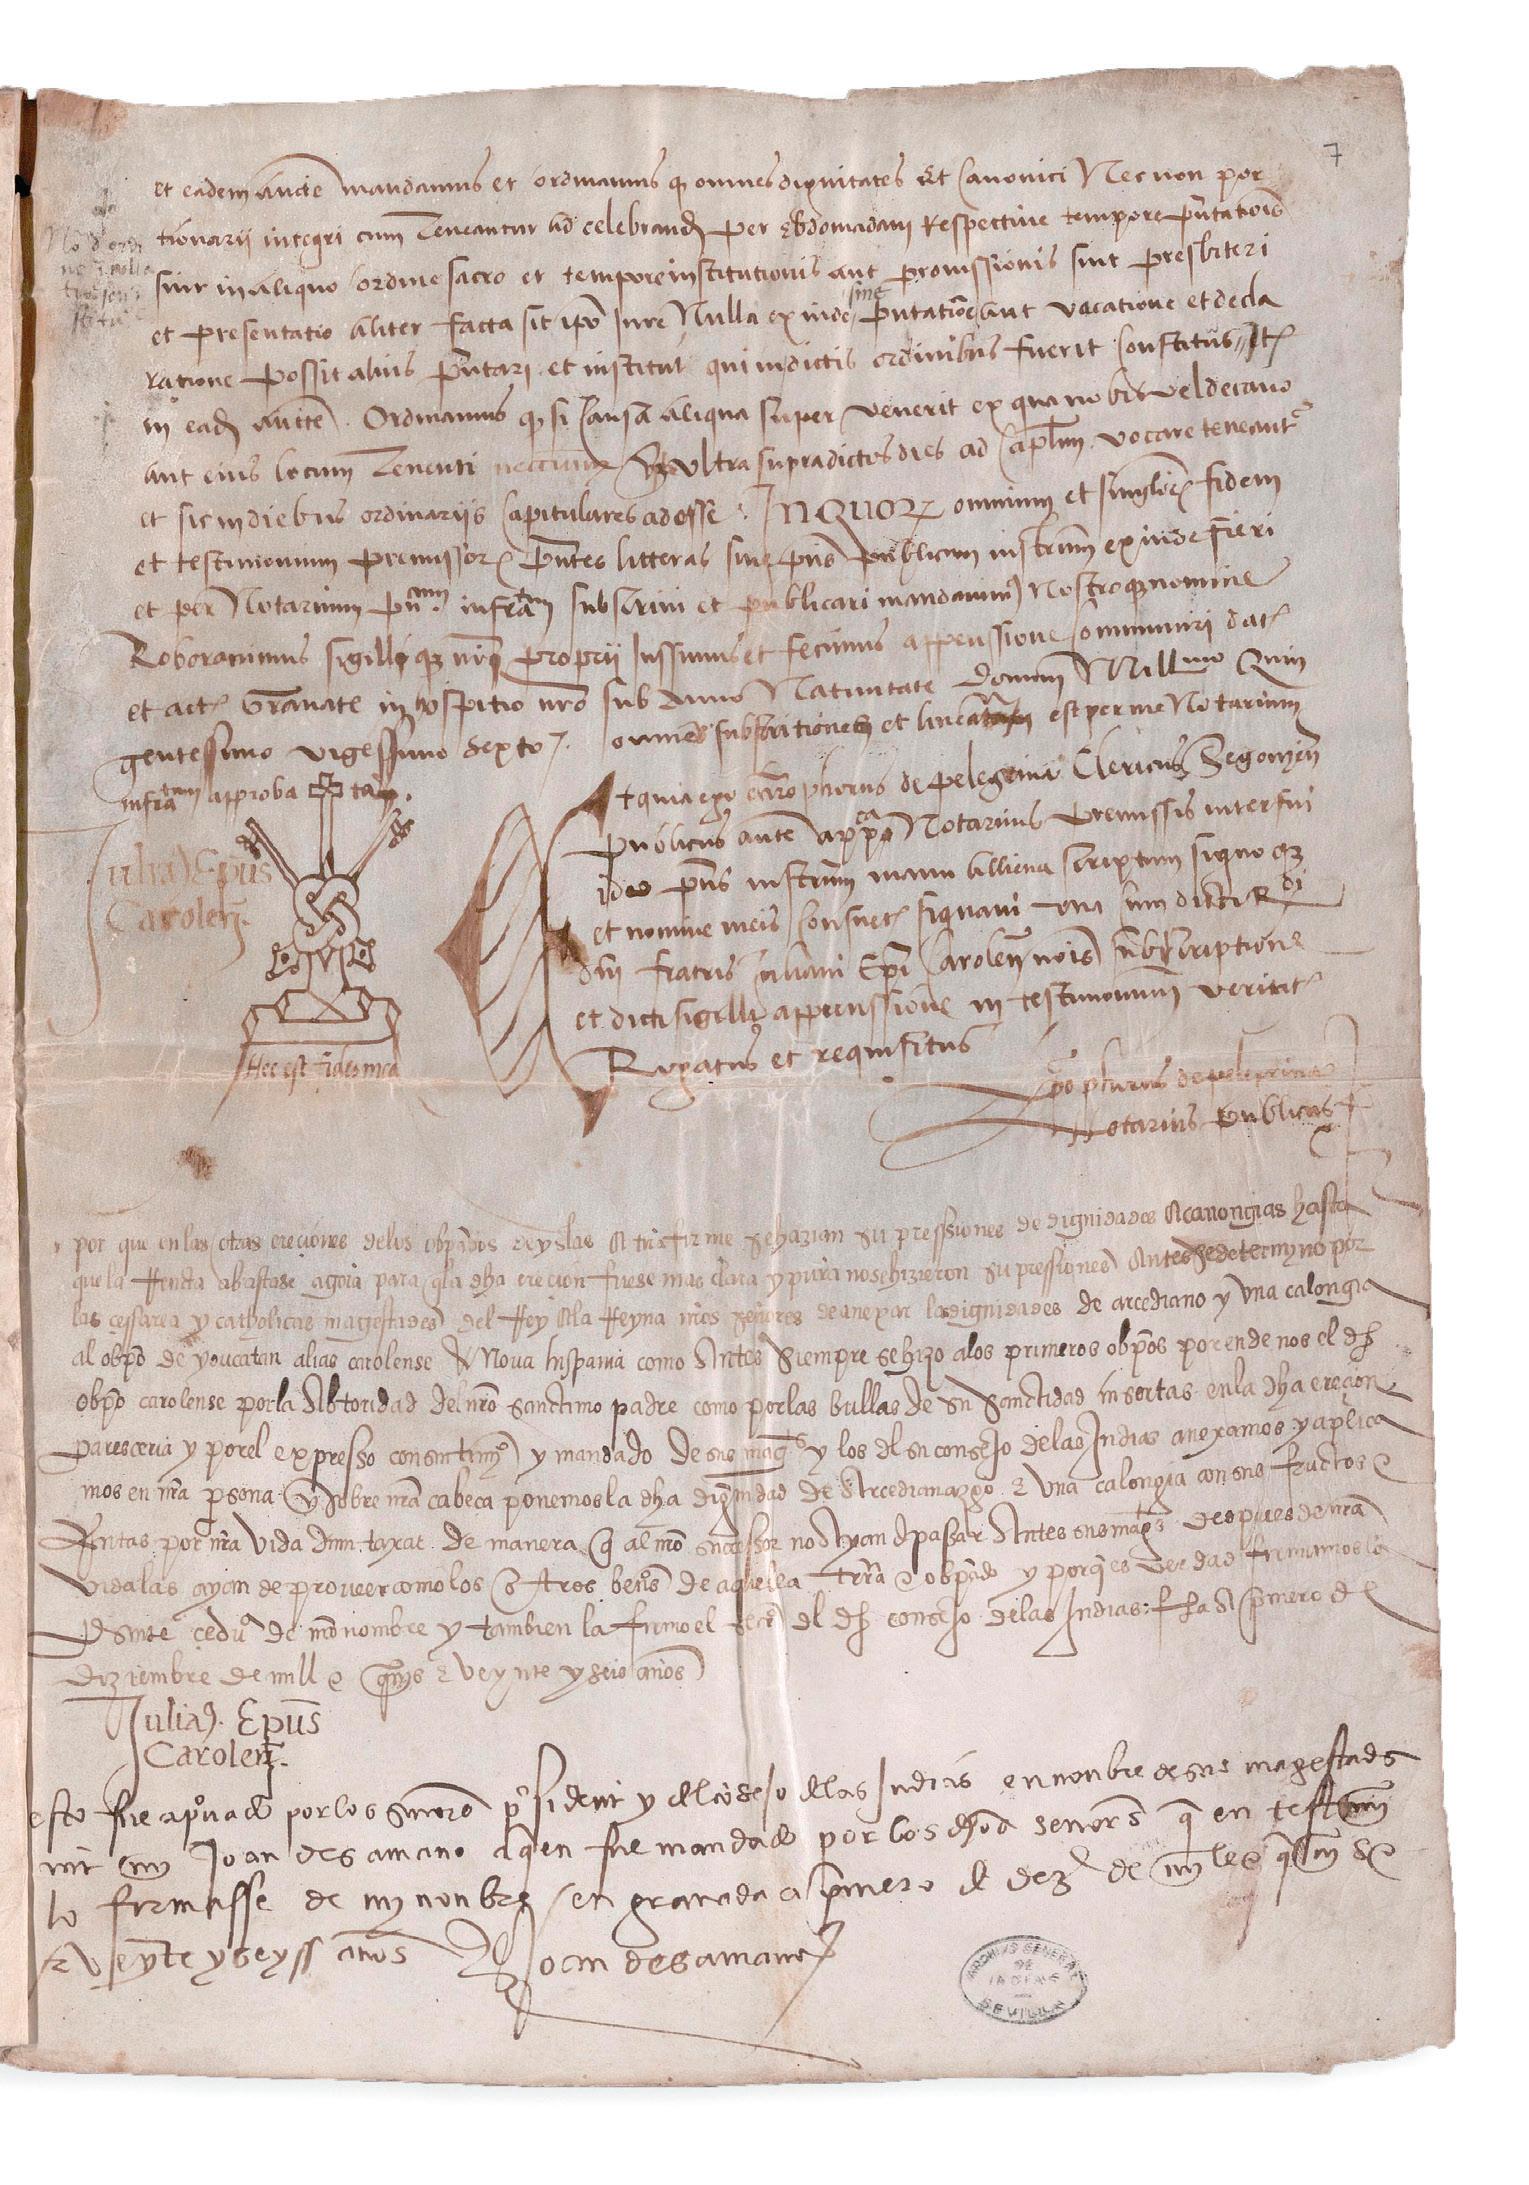 7
et eadem aucte mandamus et ordinamus q omnes dignitates Et Canonici Nec non por
tionarii integri cum Teneantur ad celebrand per Ebdomadam Respective tempore pntationis
sint in aliquo ordine sacro et tempore institutionis aut provissionis sint presbiteri
et presentatio aliter facta sit ipo Jure Nulla ex inde sine pntatione aut vocatione et decla
ratione possit alius pntari et institui qui in dictis ordinibus fuerit Constitus Ite
in ead aucte Ordinamus q si Causa aliqua super venerit ex qua nobis vel decano
aut eius locum Tenenti ultra supradictos dies ad Caplum vocare teneant
et sic in diebus ordinariis Capitulares adesse. IN QUOR omnium et singlor fidem
et testimonium premissor pntes litteras sive pns publicum instrum ex inde fieri
et per Notarium pu infra subscrivi et publicari mandavim Nostroq nomine
Roboravimus sigilliq nri proprii Jussimus et fecimus appenssione Communiri dat
et act Granate in hospitio nro sub Anno Nativitate Domini Millmo Quin
gentessimo vigessimo sexto. omnes subscritiones et lineatam est per me Notarium
infra approbatam.
Et quia ego xpophorus de pelegrina Clericus Segovien
publicus aucte appca Notarius premissis interfui
ideo pns instrum manu alliena scriptum signo q
et nomine meis consuet signavi una cum dicti Rdi
dni fratris Juliani Epi Carolen nois subscriptione
et dicti sigilli appenssione in testimonium veritat
Rogatus et requisitus
Julian Epus
Carolen.
Hec est fides mea
xpophorus de pelegrina
Notarius publicus
por que en las otras ereciones de los obpados de yslas A trra firme se hazian supressiones de dignidades A canongias hasta
que la Renta abastase agora para q la dha erecion fuese mas clara y pura no se hizieron supressiones Antes se determyno por
las cessarea y catholicas magestades del Rey A la Reyna nros señores de anexar las dignidades de arcediano y una calongia
al obpo de youcatan alias carolense A Nova hispania como Antes Siempre se hizo a los primeros obpos por ende nos el dho
obpo carolense por la Abtoridad del nro sanctimo padre como por las bullas de su Sanctidad insertas en la dha erecion
paresceria y por el expresso consintimo y mandado de sus mags y los del su consejo de las Indias anexamos y aplica
mos en nra psona y sobre nra cabeca ponemos la dha dignidad de Arcedianazgo e una calongia con sus fructos e
Rentas por nra vida dum taxat de manera q al nro sucessor no Ayan d passar Antes sus mags despues de nra
vida las ayan de proveer como los otros benos de aquella trra e obpado y porq es verdad firmamos la
psente cedu de nro nombre y tambien la firmo el secr del dho consejo de las Indias: ffa A primero de
diziembre de mill e quios e veynte y seis años
Julian. Epus
Carolen.
esto fue aprovado por los señores presidente y del consejo de las Indias en nonbre de sus magestads
Joan de samano a quien fue mandado por los dhos señores que en testimonio
lo firmasse de my nonbre en granada a primero de dez de mill e quis
e veynte y seyss años Joan de samano
ARCHIVO GENERAL
DE
INDIAS
SEVILLA